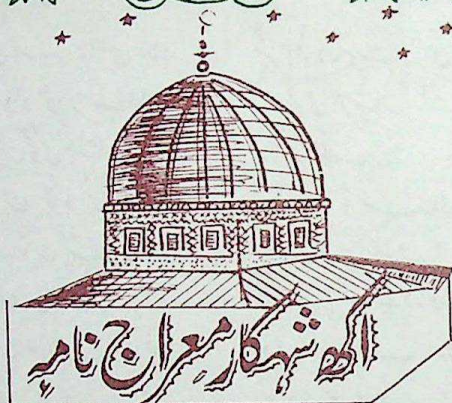 اکھ شہکار مِعراج نامہٕ